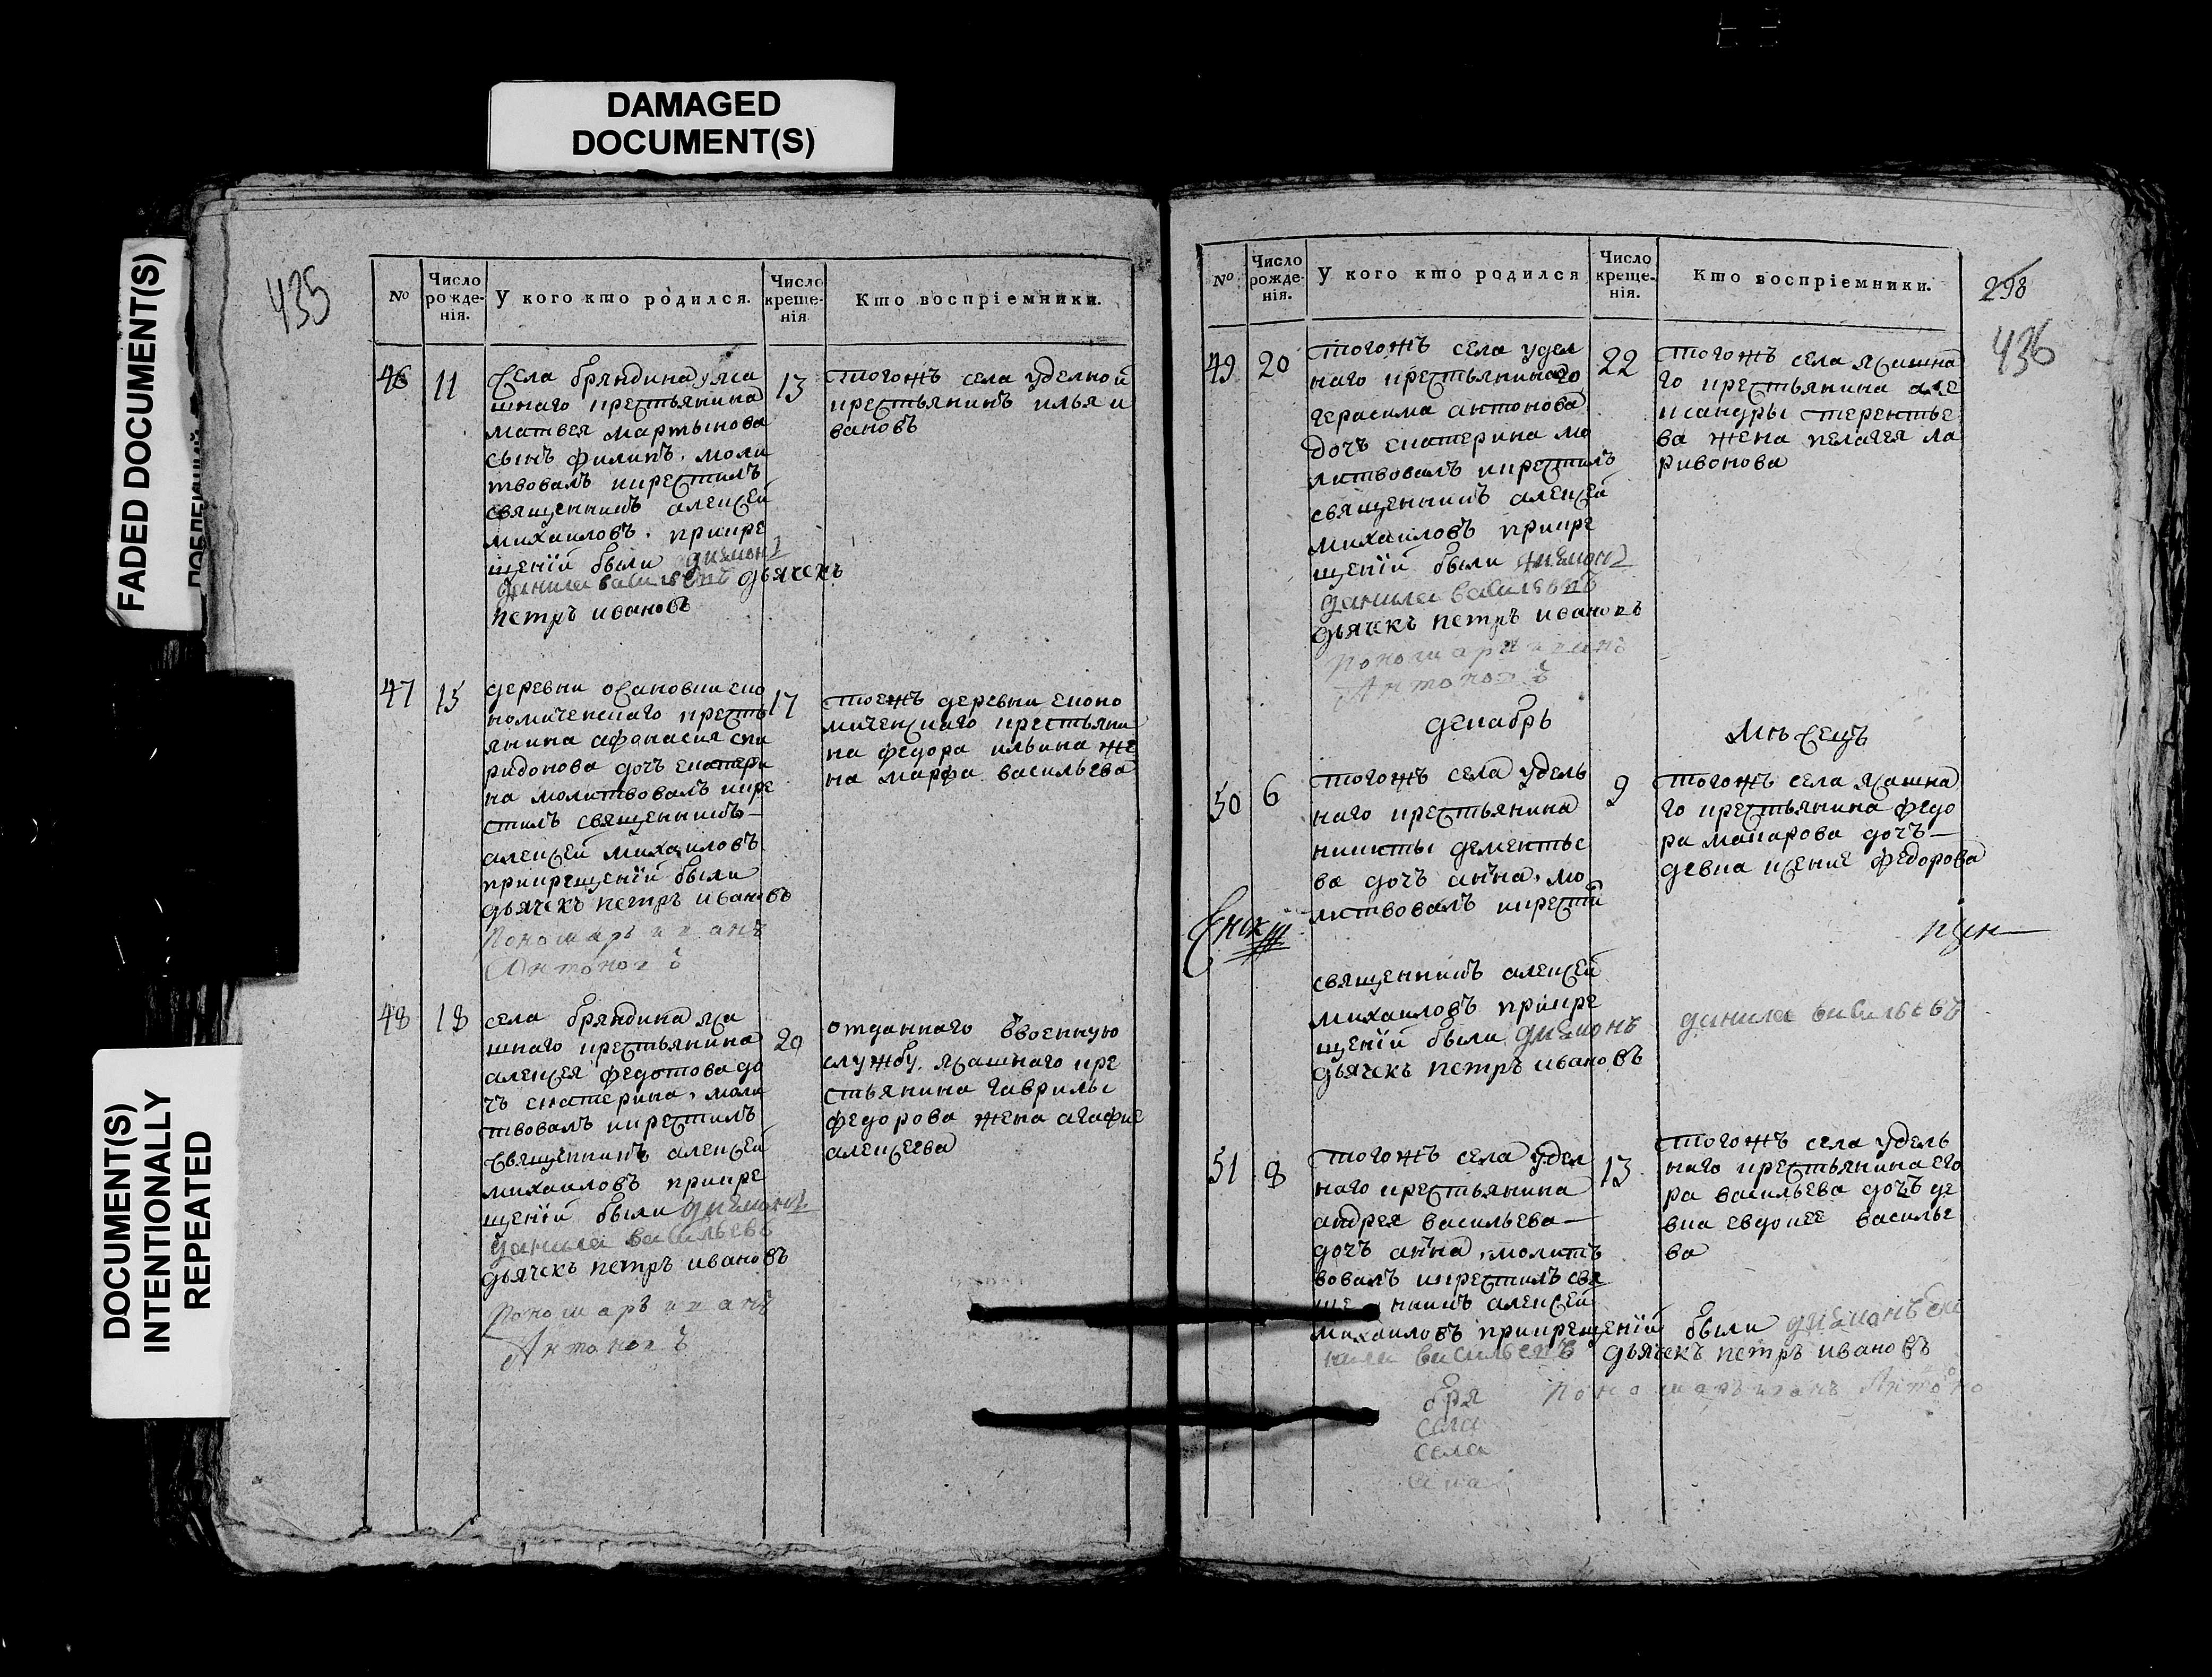 DAMAGED
DOCUMENT(S)
FADED DOCUMENT(S)
DOCUMENT(S)
INTENTIONALLY
REPEATED
435
№
Число рожденія.
У кого кто родился.
Число крещенія
Кто воспріемники.
46
11
Села бряндина яса
шнаго крестьянина
матвея мартынова
сынъ филипъ. моли
твовалъ икрестилъ
священникъ алексей
михаиловъ. прикре
щенiй были диаконъ
данила васильевъ дьячекъ
петръ ивановъ
13
тогожъ села уделной
крестьянинъ илья и
вановъ
47
15
деревни осановки еко
номическаго кресть
янина афонасия спи
ридонова дочъ екатери
на молитвовалъ икре
стилъ священникъ
алексей михаиловъ
прикрещенiй были
дьячекъ петръ ивановъ
Пономарь иванъ
Антоновъ
17
тоежъ деревни еконо
мическаго крестьяни
на федора ильина же
на марфа васильева
48
18
села бряндина яса
шнаго крестьянина
алексея федотова до
чъ екатерина, моли
твовалъ икрестилъ
священникъ алексей
михаиловъ прикре
щенiй были диаконъ
данила васильевъ
дьячекъ петръ ивановъ
Пономарь иванъ
Антоновъ
20
отданнаго ввоенную
службу. ясашнаго кре
стьянина гаврилы
федорова жена агафие
алексеева
№
Число рожденія.
У кого кто родился
Число крещенія.
Кто воспріемники.
298
436
49
20
тогожъ села удел
наго крестьянинаго
герасима антонова
дочъ екатерина мо
литвовалъ икрестилъ
священникъ алексей
михаиловъ прикре
щенiй были диаконъ
данила васильевъ
дьячекъ петръ ивановъ
Пономарь иванъ
Антоновъ
22
тогожъ села ясашна
го крестьянина але
ксандры терентье
ва жена пелагея ла
ривонова
декабрь
мѣсецъ
50
6
тогожъ села удель
наго крестьянина
никиты дементье
ва дочъ анна. мо
литвовалъ икрести
священникъ алексей
михаиловъ прикре
щенiй были диаконъ данила васильевъ
дьячекъ петръ ивановъ
9
тогожъ села ясашна
го крестьянина федо
ра макарова дочъ
девка ксение федорова
51
8
тогожъ села удел
наго крестьянина
андрея васильева
дочъ анна, молит
вовалъ икрестилъ свя
ще нникъ алексей
михаиловъ прикрещенiй были диаконъ да
нила васильевъ дьячекъ петръ ивановъ
Пономарь иванъ Антоно
13
тогожъ села удель
наго крестьянина его
ра васильева дочъ де
вка евдокее василье
ва
бря
села
села